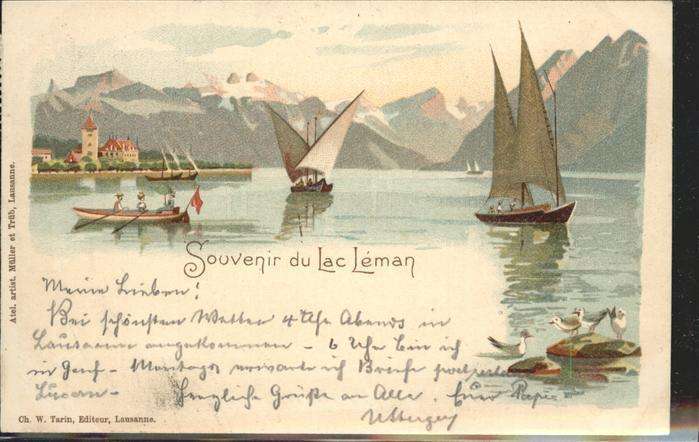 Atel. artist. Müller et Trüb, Lausanne.
Souvenir du Lac Léman
Meine Lieben!
Bei schönsten Wetter 4 Uhr Abends in
Lausanne angekommen – 6 Uhr bin ich
in Genf – Montags erwarte ich Briefe
Luzern – Herzliche Grüße an Alle. Euer Papa
Ch. W. Tarin, Editeur, Lausanne.